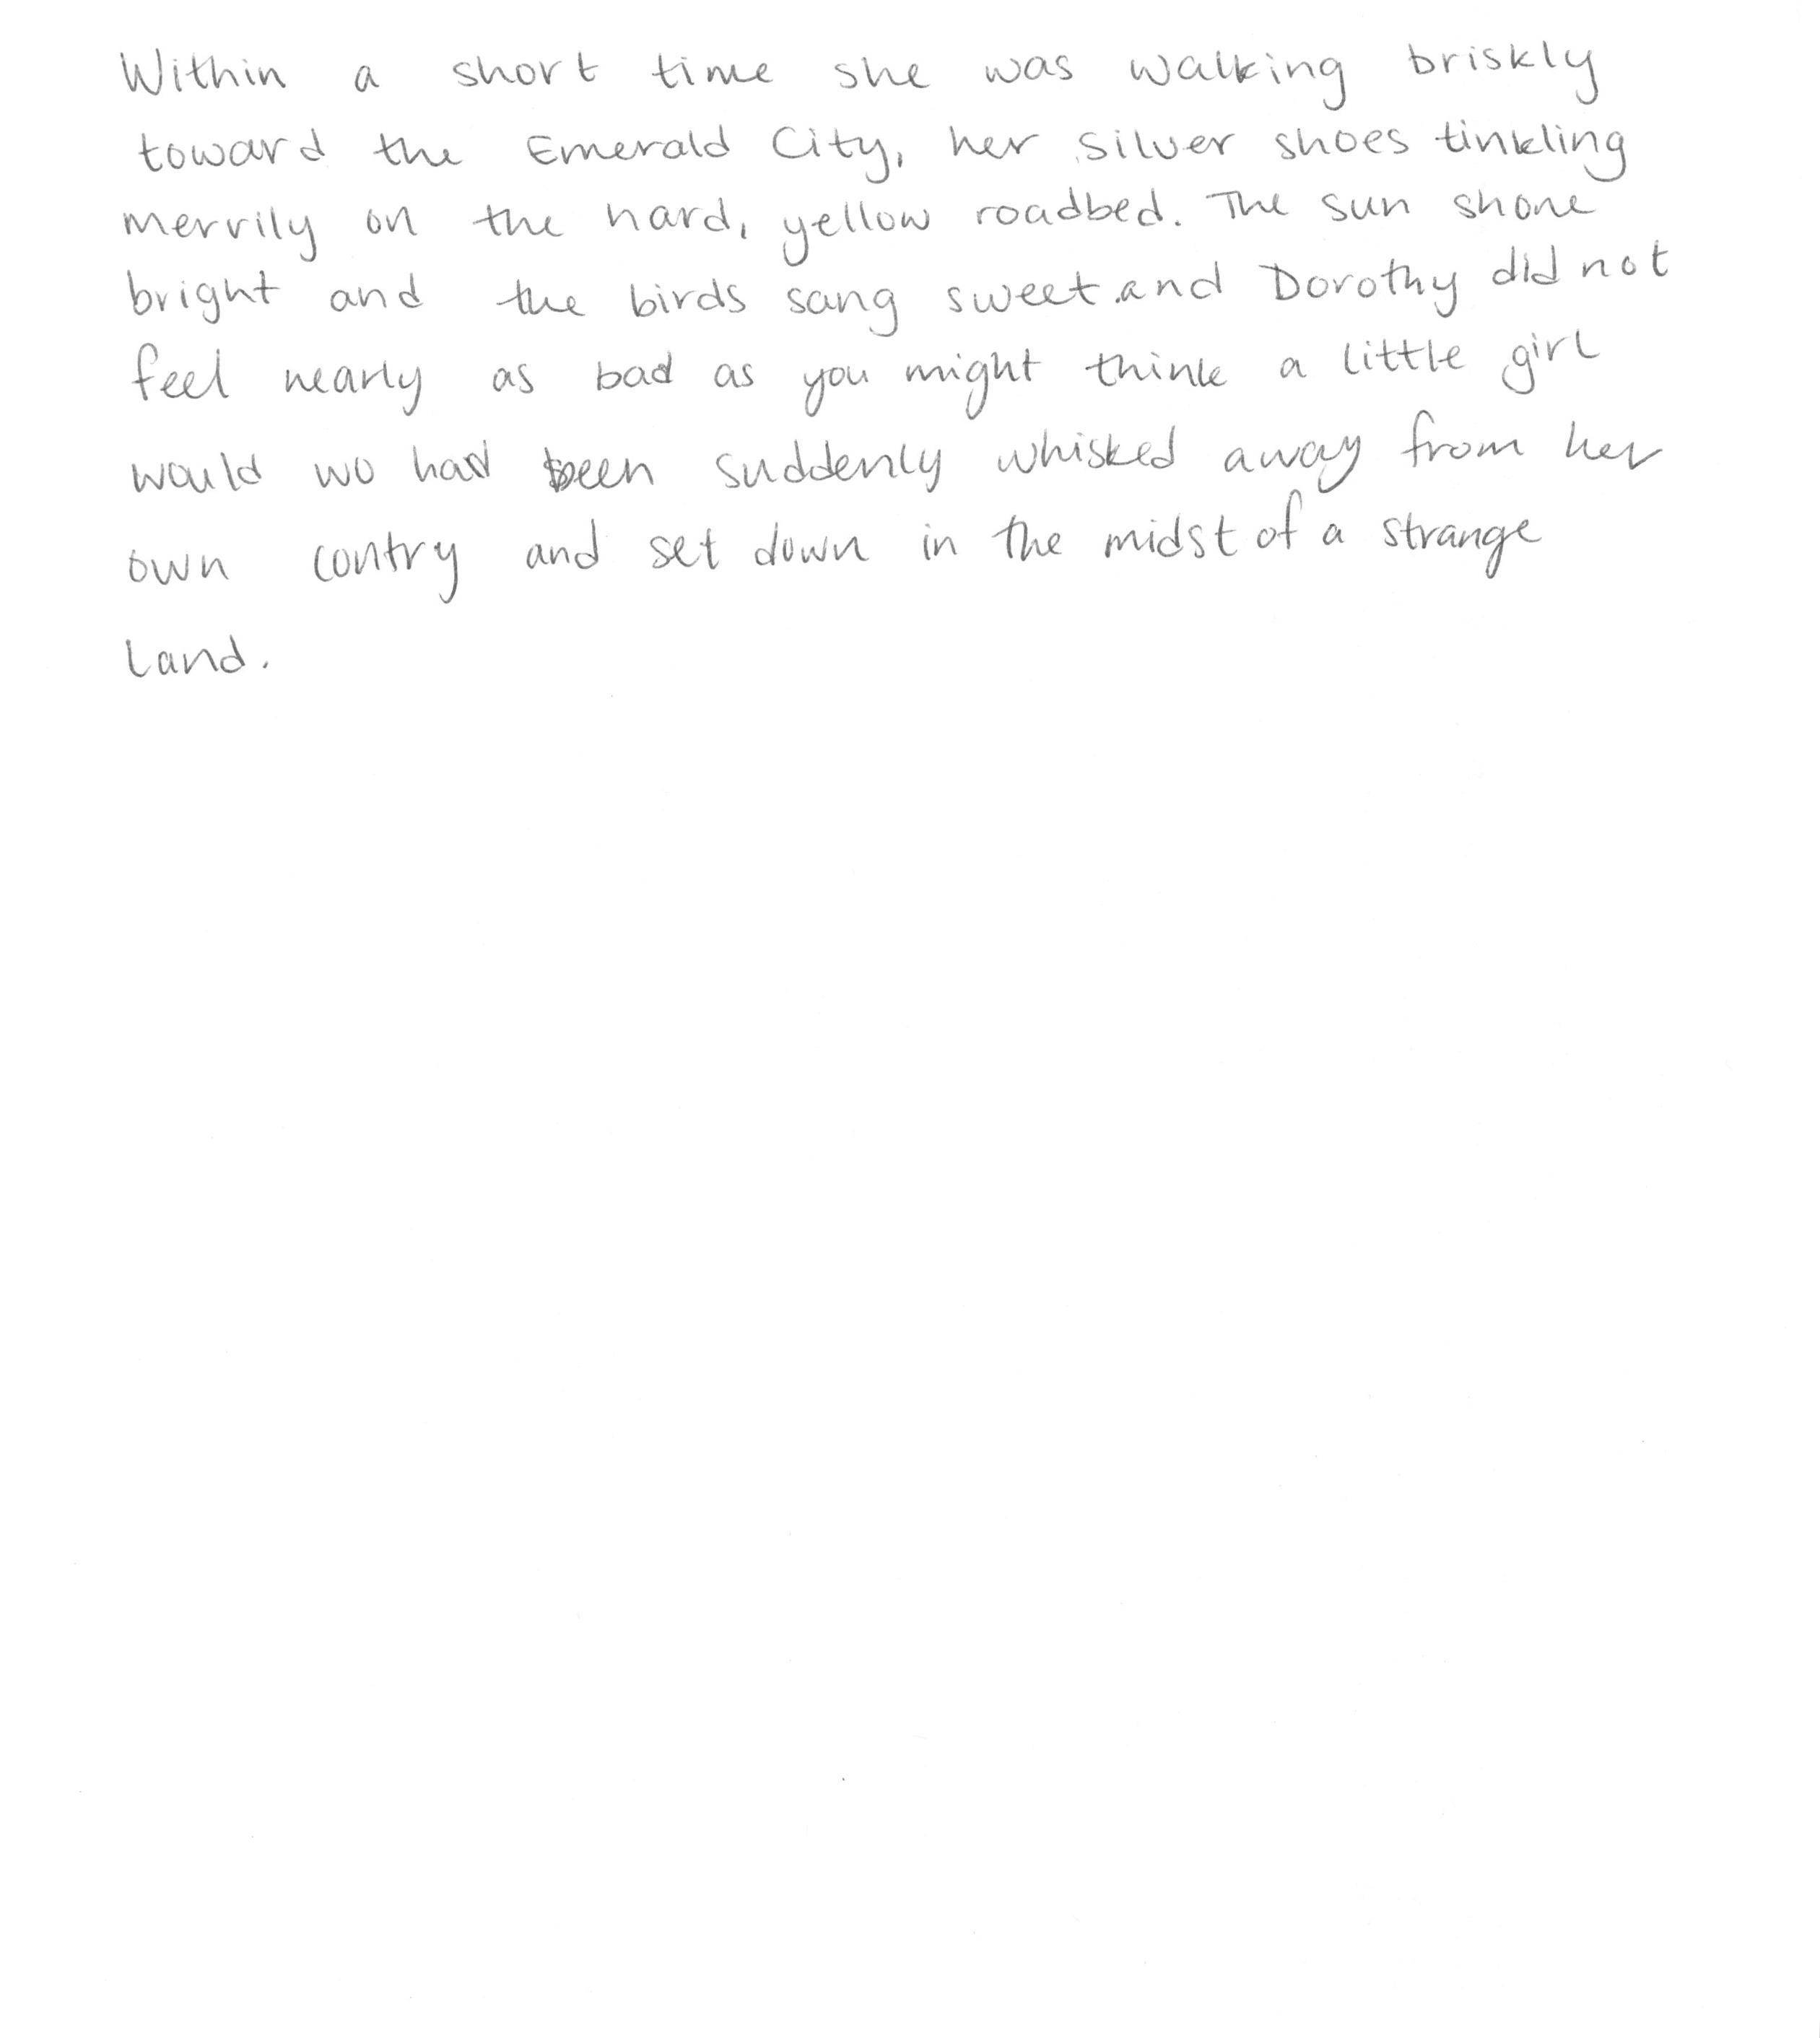 Within a short time she was walking briskly
toward the Emerald City, her silver shoes tinkling
merrily on the hard, yellow roadbed. The sun shone
bright and the birds sang sweet and Dorothy did not
feel nearly as bad as you might think a little girl
would wo had been suddenly whisked away from her
own contry and set down in the midst of a strange
land.